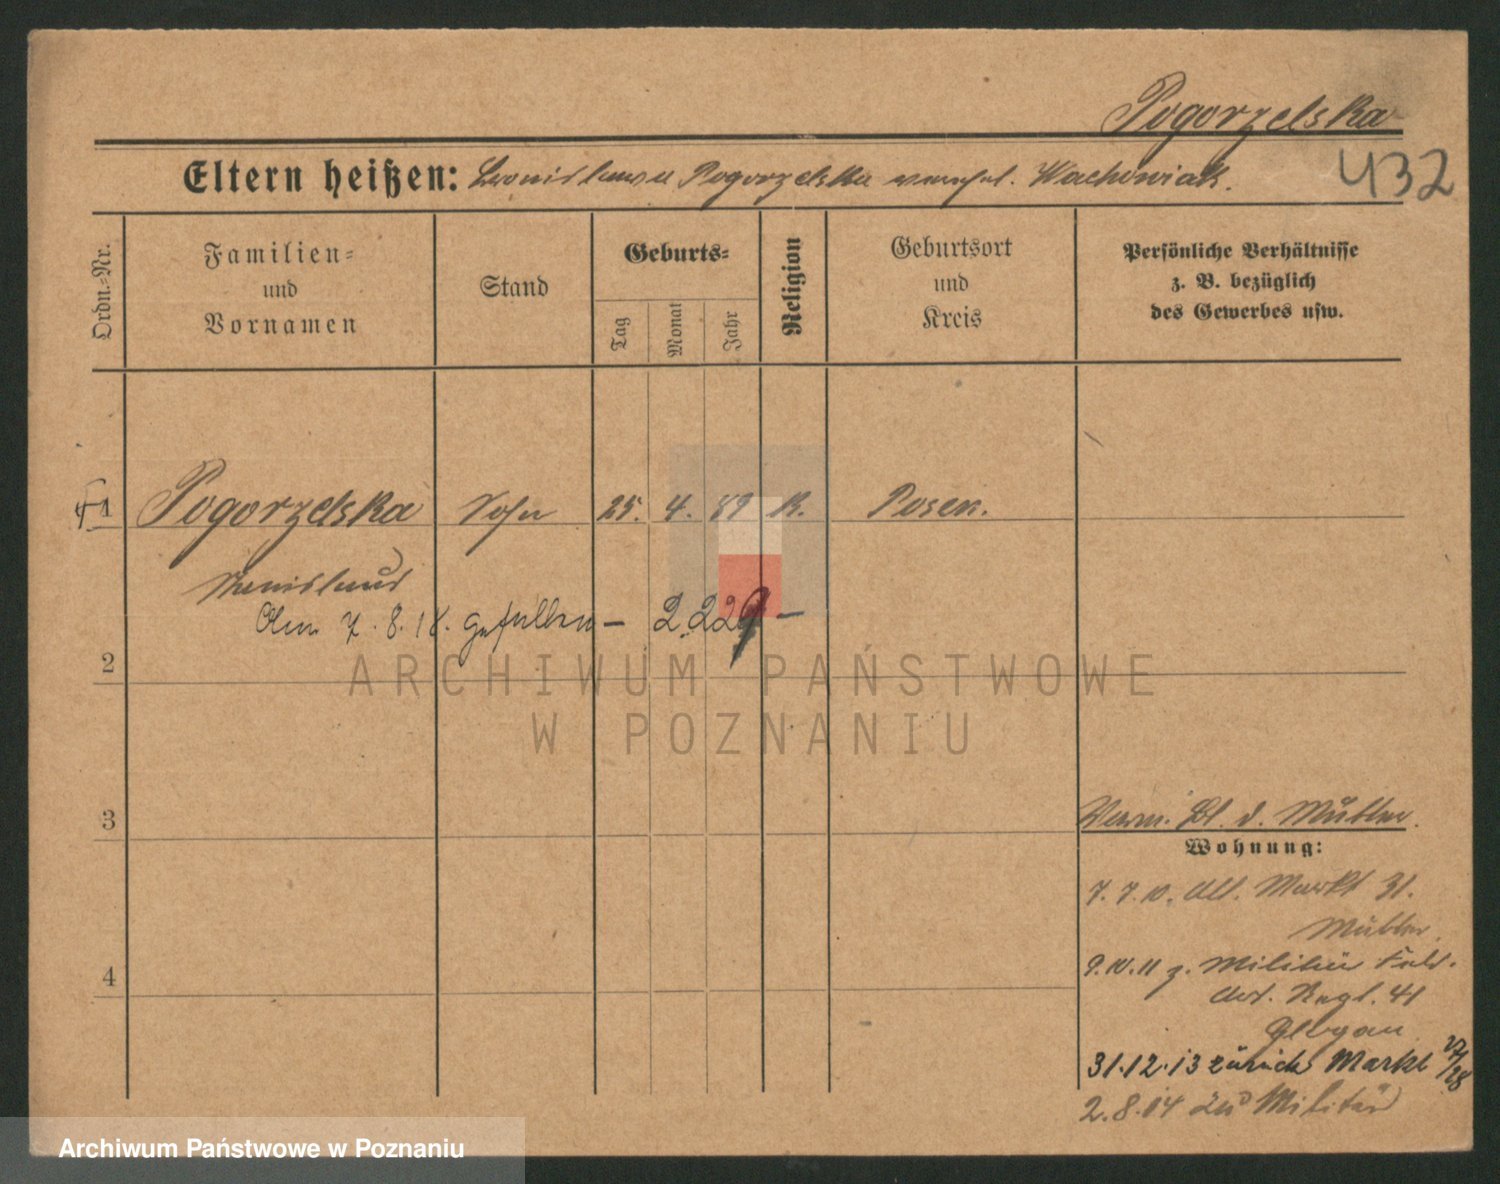 Pogorzelska
Eltern heißen: Bronislawa Pogorzelska verehel. Wachowiak.
432
Ordn.-Nr.
Familien-
und
Vornamen
Stand
Geburts-
Tag
Monat
Jahr
Religion
Geburtsort
und
Kreis
Persönliche Verhältnisse
z. B. bezüglich
des Gewerbes usw.
1 Pogorzelska Sohn 25. 4. 89 K. Posen.
Stanislaus
Am 7.8.18. gefallen – 2.229 –
2
ARCHIWUM PAŃSTWOWE
W POZNANIU
3
Verm. Bl. d. Mutter.
Wohnung:
7.7.10. Alt. Markt 31.
Mutter.
4
9.10.11 z. Militär Feld.
Art. Regt. 41
Glogau
31.12.13 zurück Markt 27/28
2.8.14 zum Militär
Archiwum Państwowe w Poznaniu